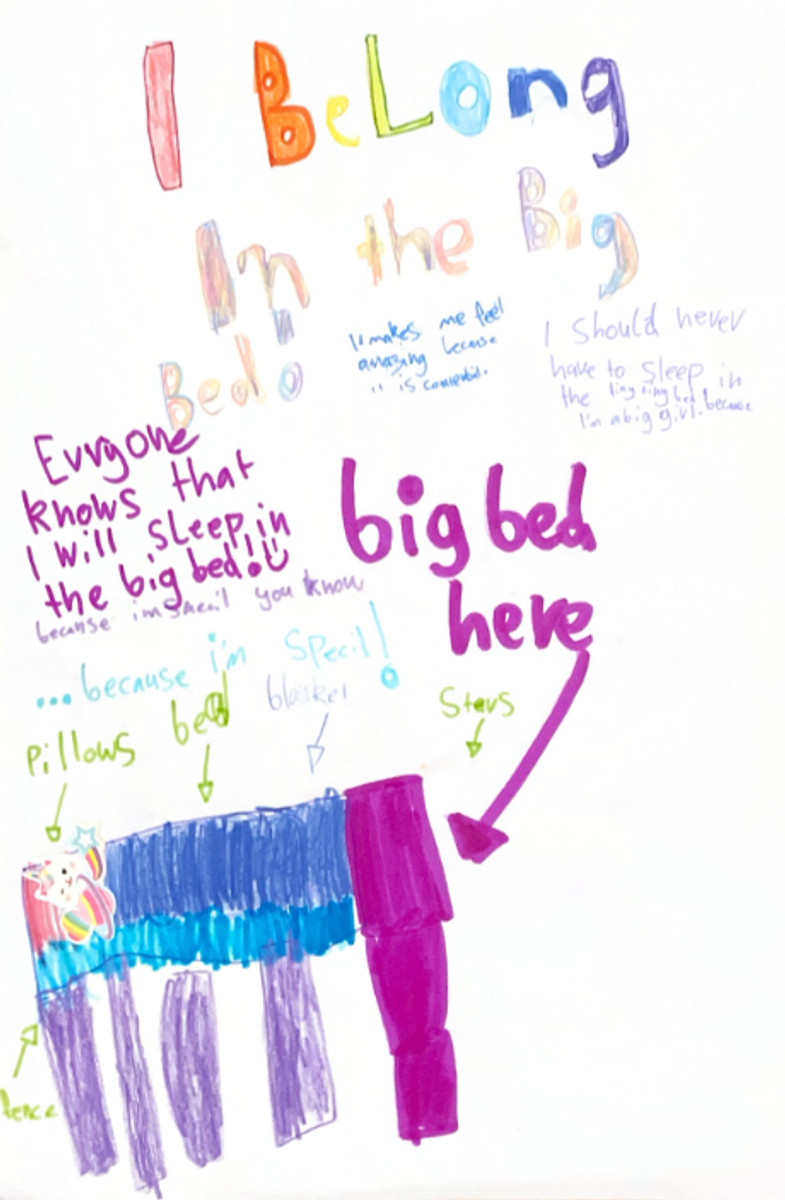 I BeLong
In the Big
Bed!
It makes me feel
amazing because
it is
I should never
have to sleep in
the tiny tiny bed because
I'm a big girl.
Evryone
knows that
I will sleep in
the big bed!
because im specil you know
...because i'm specil!
big bed
here
Pillows
bed
blanket
Sters
fence